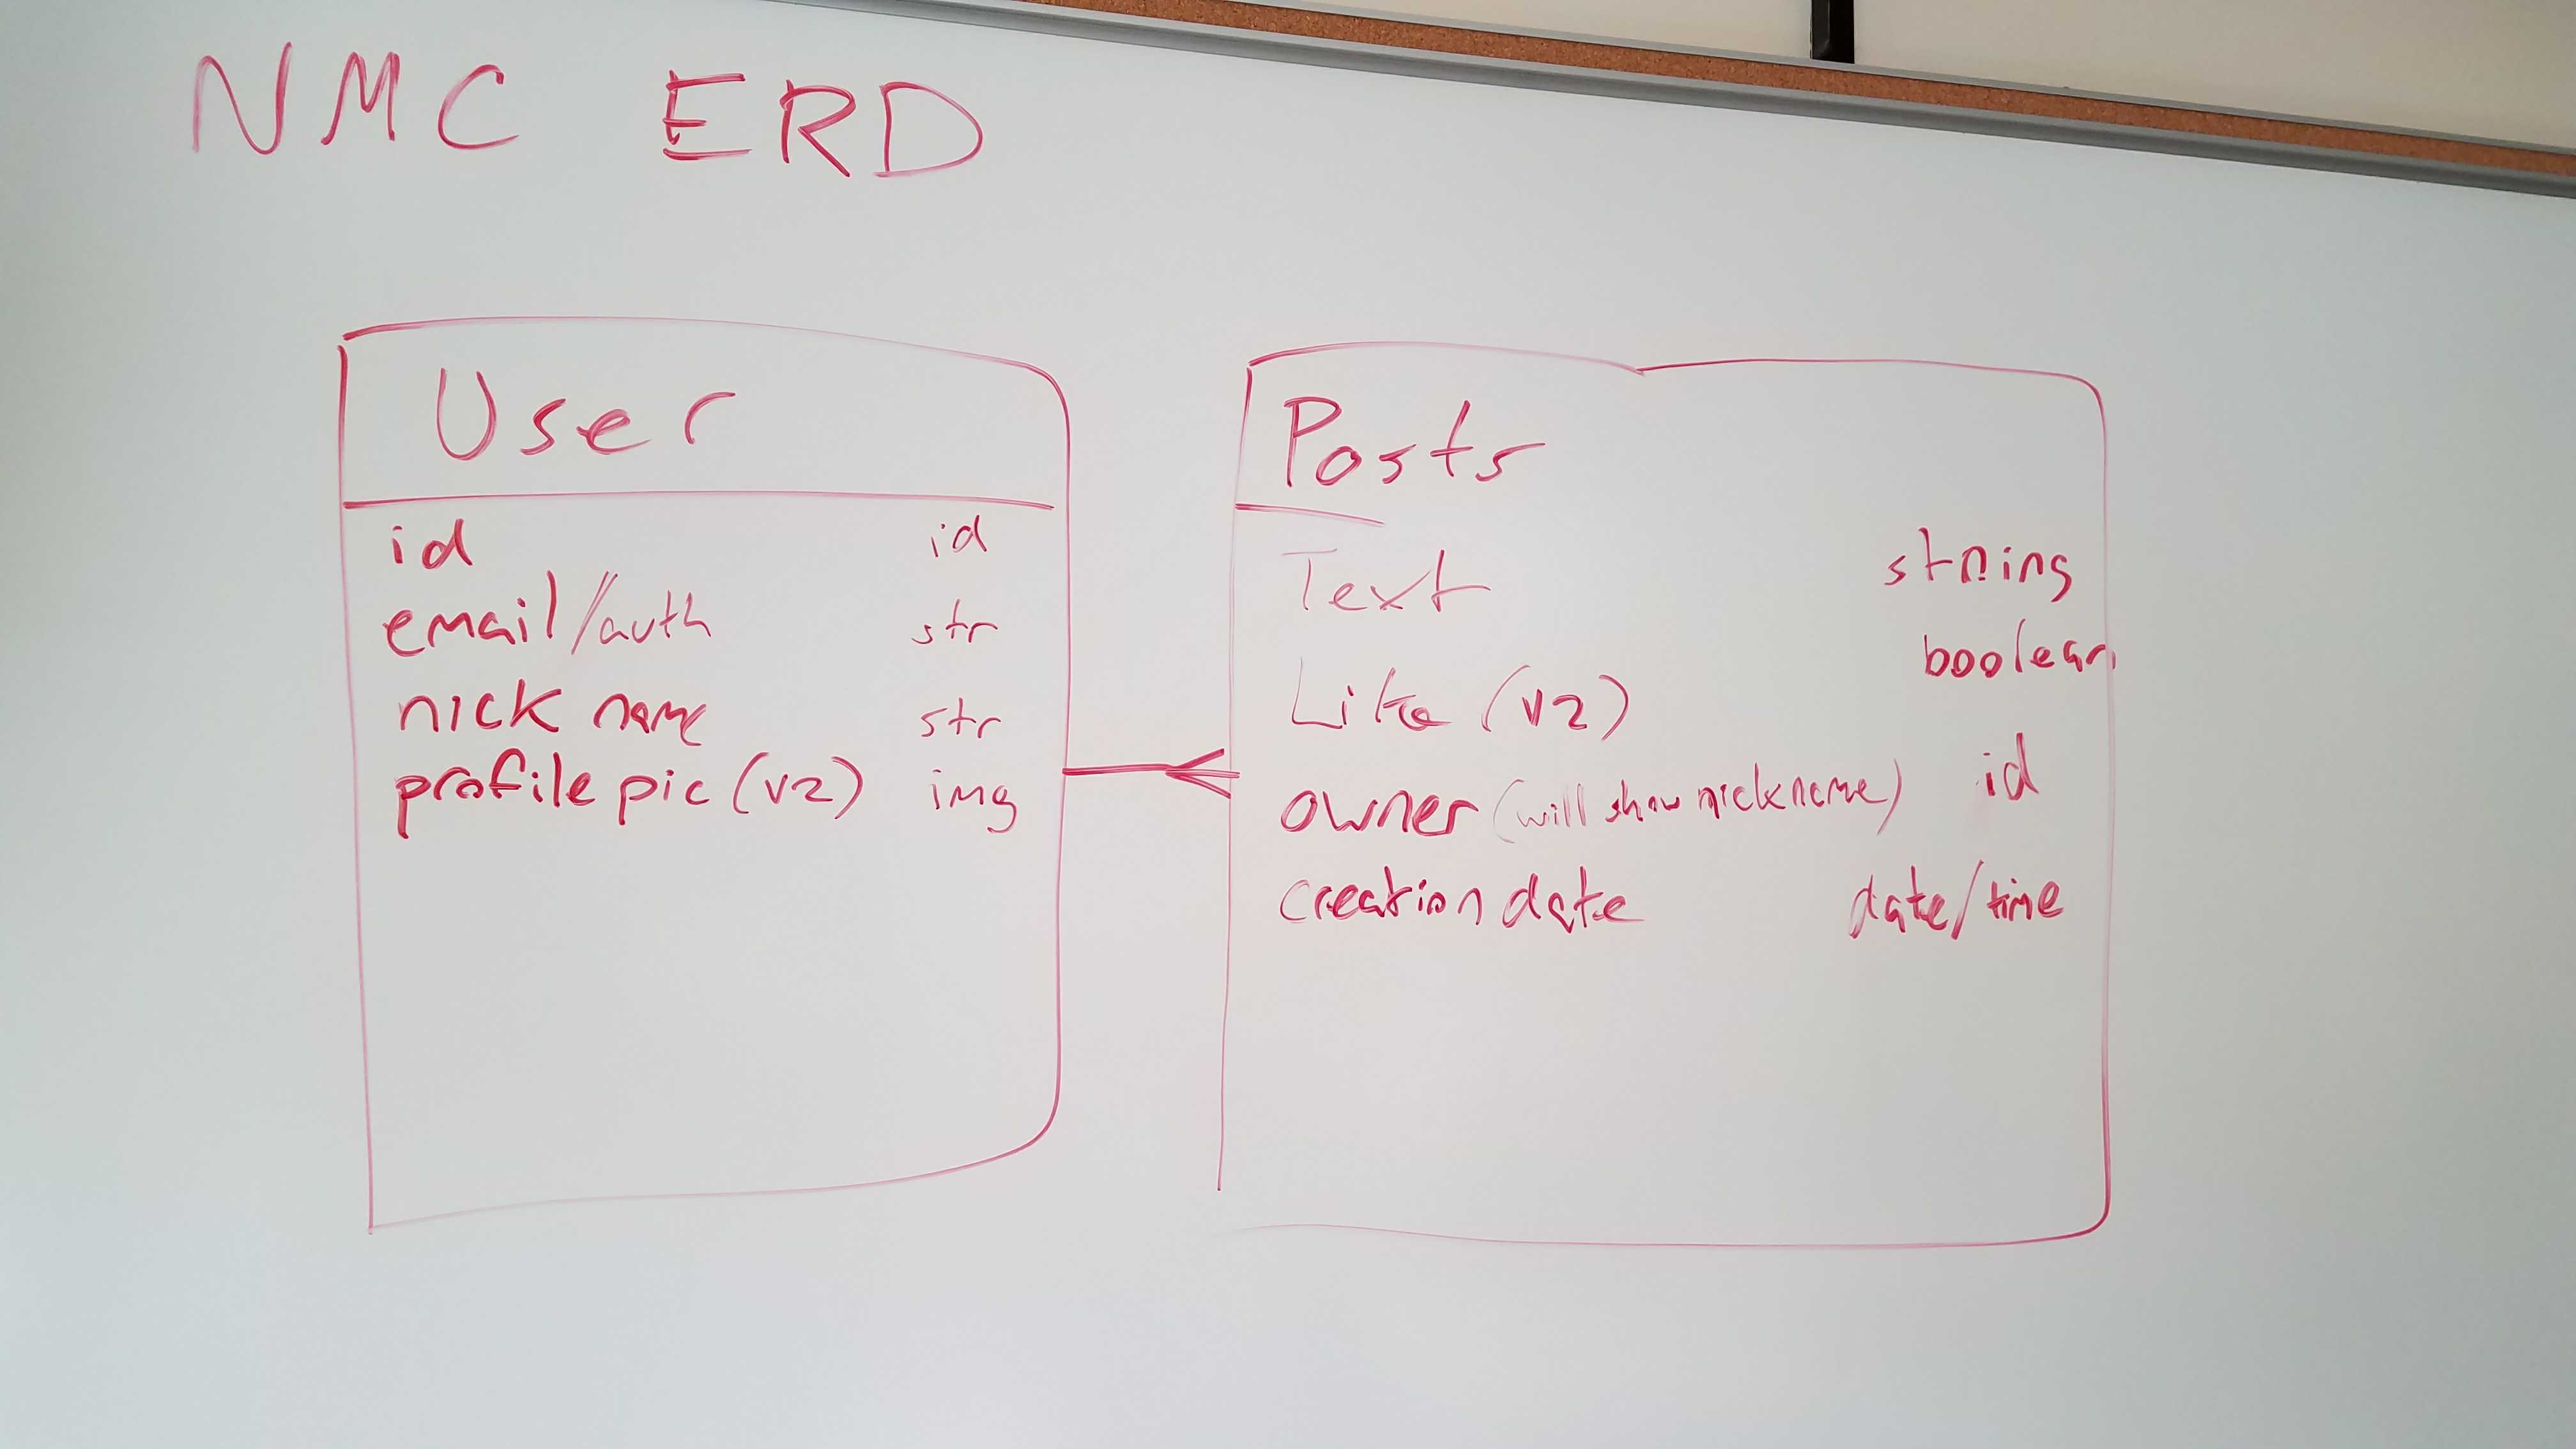 NMC ERD
User
id id
email/auth str
nick name str
profile pic (v2) img
Posts
Text string
Like (v2) boolean
owner (will show nickname) id
creation date date/time